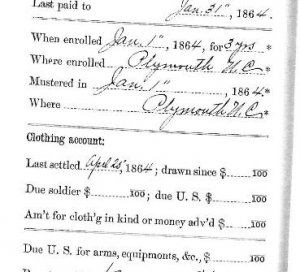 Last paid to Jan. 31", 1864.
When enrolled Jan. 1", 1864, for 3 yrs *
Where enrolled Plymouth N.C *
Mustered in Jan. 1", 1864*
Where Plymouth N.C*
Clothing account:
Last settled April 25", 1864; drawn since $ 100
Due soldier $ 100; due U. S. $ 100
Am't for cloth'g in kind or money adv'd $ 100
Due U. S. for arms, equipments, &c., $ 100